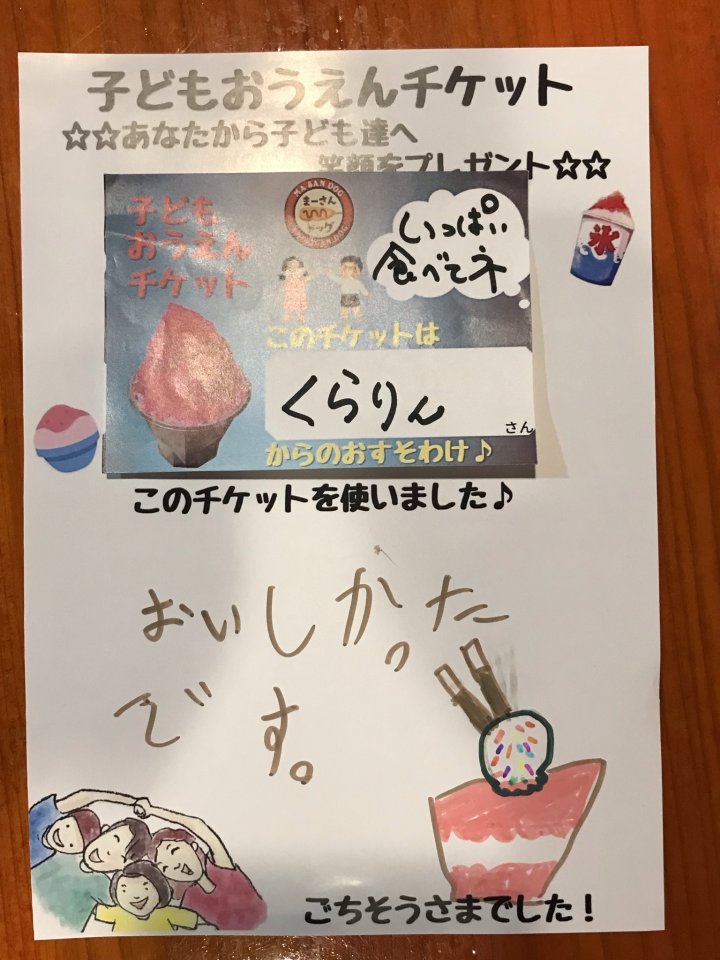 子どもおうえんチケット
☆☆あなたから子ども達へ
笑顔をプレゼント☆☆
氷
子ども
おうえん
チケット
MA SAN DOG
まーさん
ドッグ
いっぱい
食べてネ
このチケットは
くらりん
さん
からのおすそわけ♪
このチケットを使いました♪
おいしかった
です。
ごちそうさまでした!